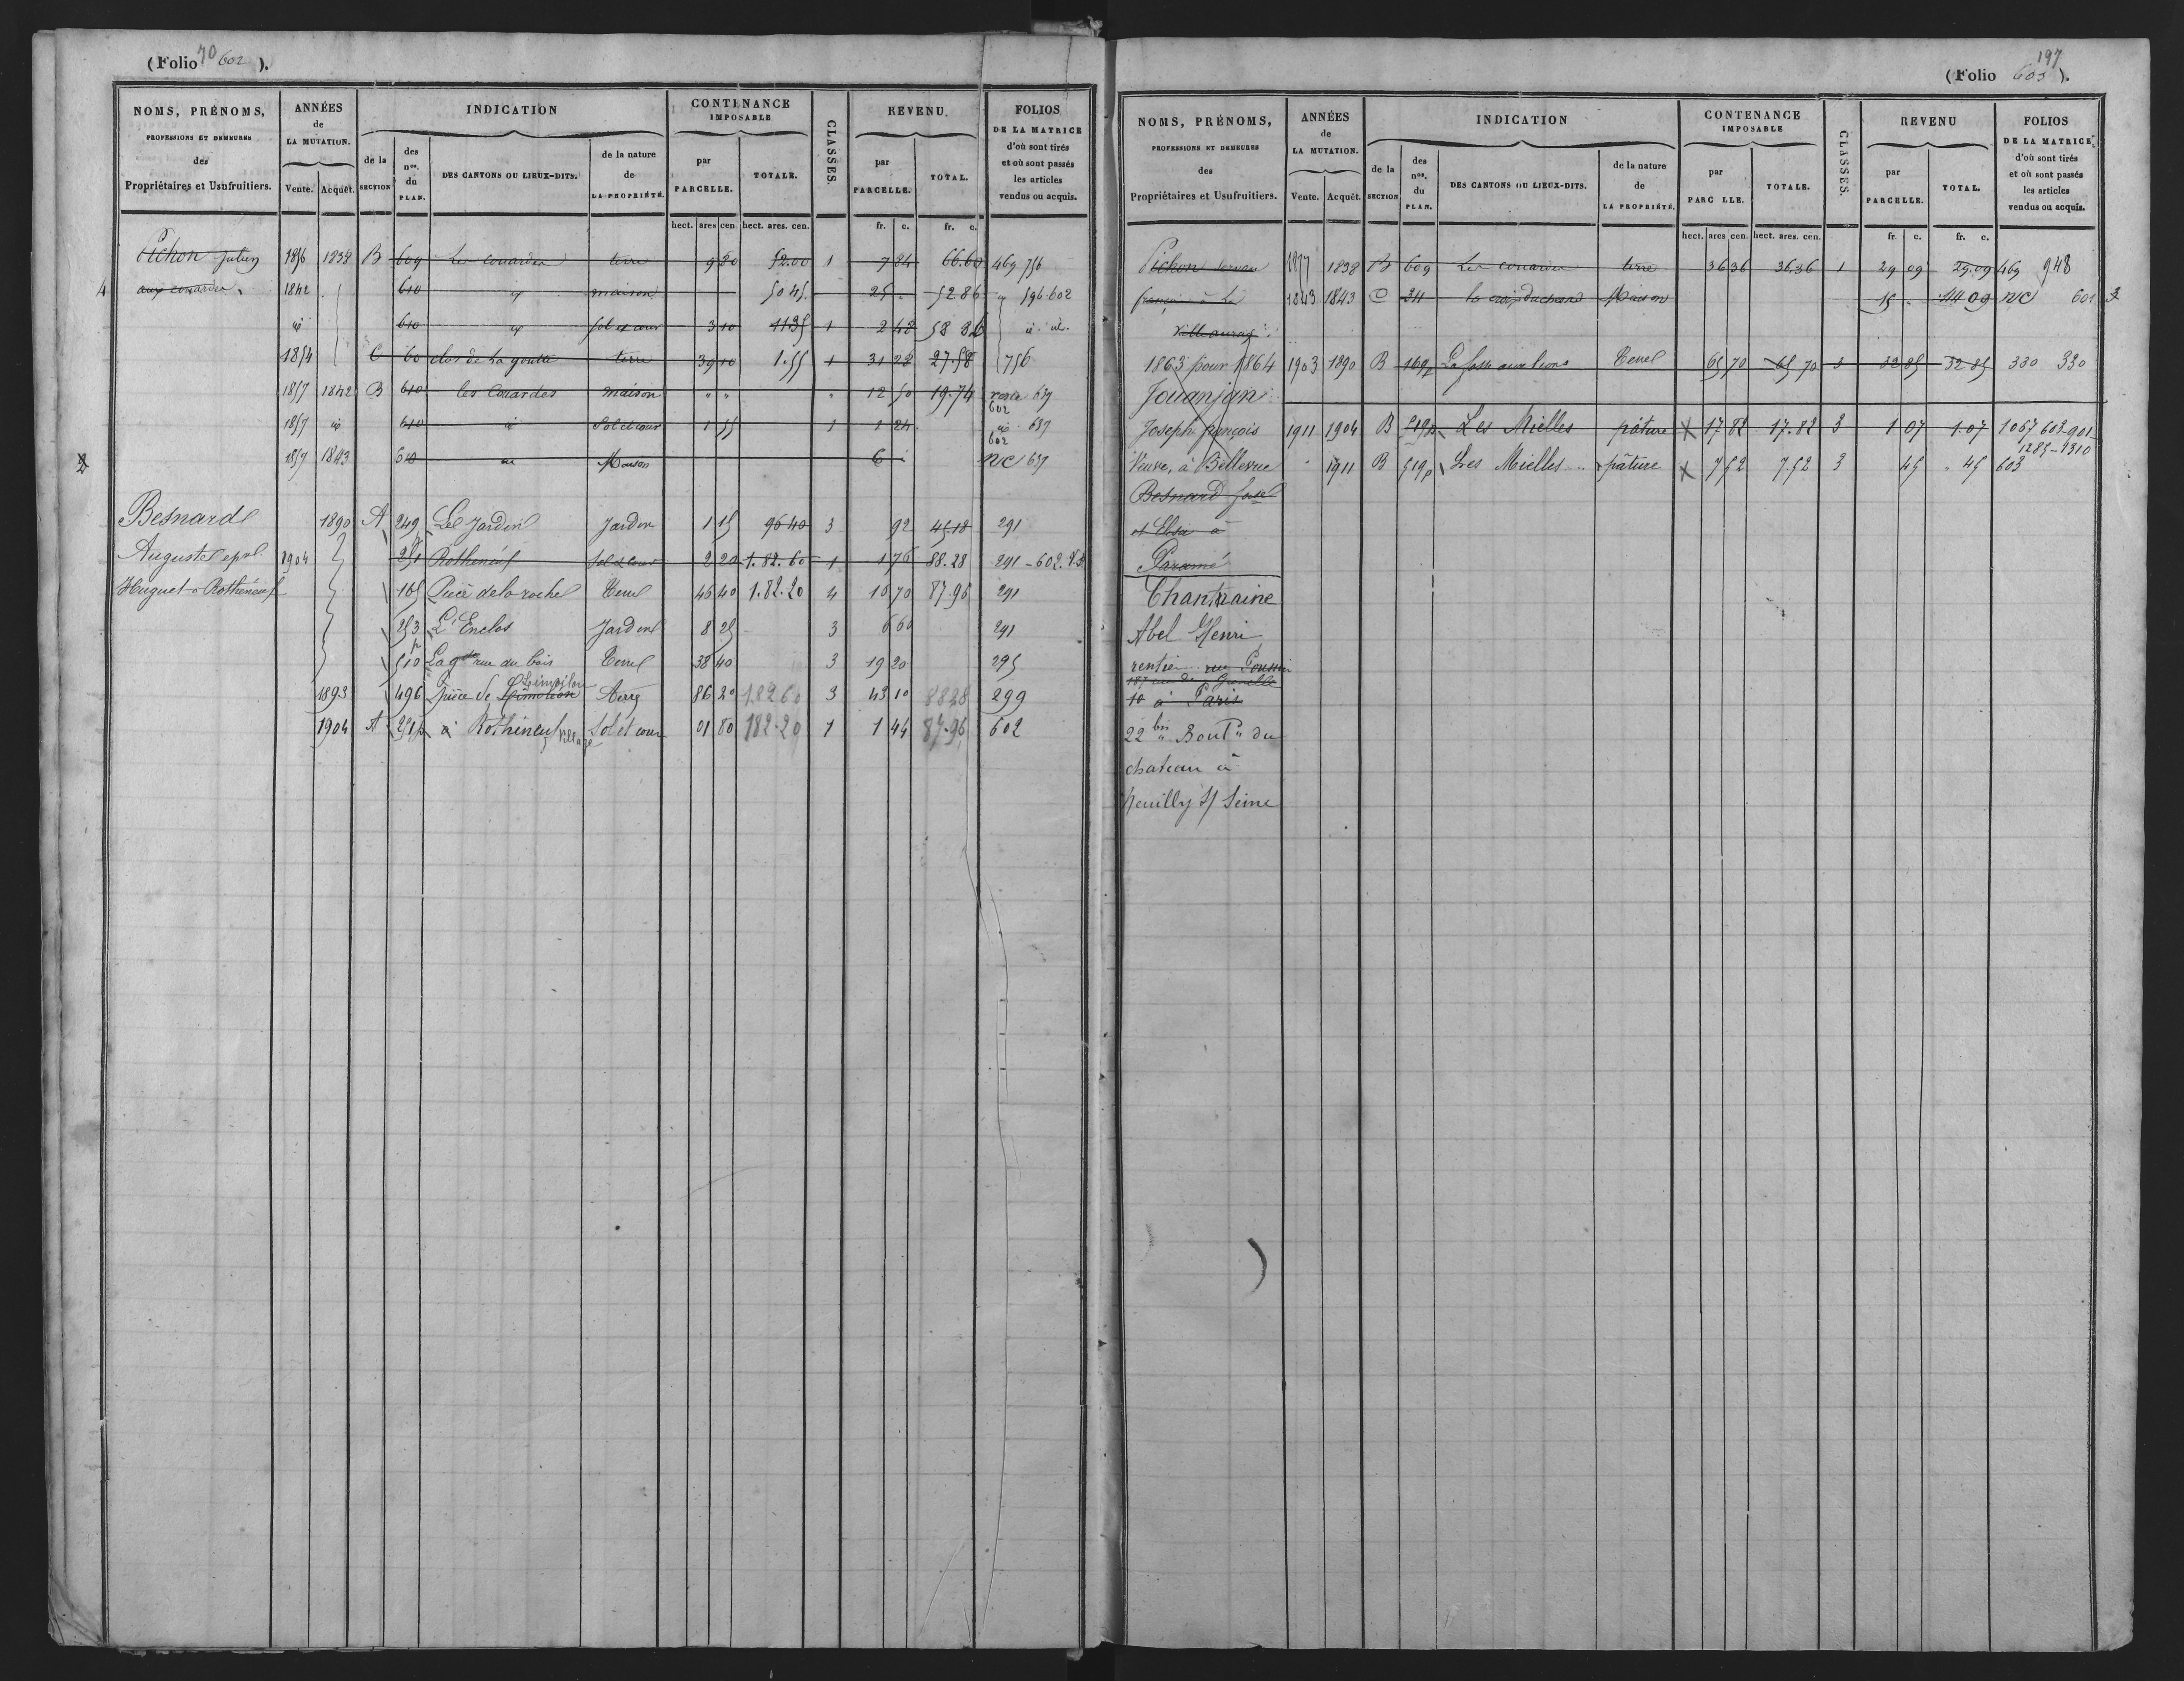 (Folio 70 602 ).
NOMS, PRÉNOMS, PROFESSIONS ET DEMEURES des Propriétaires et Usufruitiers. ANNÉES de LA MUTATION. Vente. Acquêt. INDICATION de la SECTION des nos. du PLAN. DES CANTONS OU LIEUX-DITS. de la nature de LA PROPRIÉTÉ. CONTENANCE IMPOSABLE par PARCELLE. TOTALE. CLASSES. REVENU. par PARCELLE. TOTAL. FOLIOS DE LA MATRICE d'où sont tirés et où sont passés les articles vendus ou acquis.
hect. ares cen. hect. ares. cen. fr. c. fr. c.
Pichon Julien 1856 1838 B 609 Les couardes terre 9 80 52.00 1 7 84 66.60 469 756
4 aux couardes. 1842 610 id maison 50 45 25 " 52 86 id 596.602
id 610 id sol et cour 3 10 11 35 1 2 48 58 86 id. id.
1854 C 60 clos de la goutte terre 39 10 1.55 1 31 28 27.58 756
1857 1842 B 610 les Couardes maison " " " 12 50 19.74 reste 602 637
1857 id 610 id Sol et cour 1 55 1 1 24 id 602 637
1857 1843 610 id Maison 6 " NC 637
Besnard 1890 A 249 Le Jardin Jardin 1 15 96 40 3 92 45.18 291
Auguste epx 1904 251 Rothéneuf Sol et cour 2 20 1.82.60 1 1 76 88.28 291 - 602.
Huguet à Rothéneuf 165 Pièce de la roche Terre 46 40 1.82.20 4 16 70 87.96 291
253 L'Enclos Jardin 8 25 3 6 60 291
510 La gde rue du bois Terre 38 40 3 19 20 295
1893 496 pièce de Terre 86 20 1.82 60 3 43 10 88 28 299
1904 A 251p à Rothéneuf village Sol et cour 01 80 182.20 1 1 44 87.96 602
197
(Folio 603 ).
NOMS, PRÉNOMS, PROFESSIONS ET DEMEURES des Propriétaires et Usufruitiers. ANNÉES de LA MUTATION. Vente. Acquêt. INDICATION de la SECTION des nos. du PLAN. DES CANTONS OU LIEUX-DITS. de la nature de LA PROPRIÉTÉ. CONTENANCE IMPOSABLE par PARC LLE. TOTALE. CLASSES. REVENU par PARCELLE. TOTAL. FOLIOS DE LA MATRICE d'où sont tirés et où sont passés les articles vendus ou acquis.
hect. ares cen. hect. ares. cen. fr. c. fr. c.
Pichon Servan 1877 1838 B 609 Les couardes terre 36 36 36.36 1 29 09 29.09 469 948
françois à la 1843 1843 C 34 la Maison 15 " 44 09 NC 601 3
1863 pour 1864 1903 1890 B 169p La fosse aux lions Terre 65 70 65 70 3 32 85 32 85 330 330
Jouanjan
Joseph françois 1911 1904 B 519p Les Mielles pâture X 17 82 17.82 3 1 07 1.07 1067 603-901-1285-1310
Veuve, à Bellevue " 1911 B 519p Les Mielles pâture X 7 52 7.52 3 45 " 45 603
Besnard
et Elisa à
Paramé
Chantraine
Abel Henri
rentier rue
187 rue de Grenelle
10 à Paris
22 bis " Boult " du
chateau à
Neuilly s/ Seine